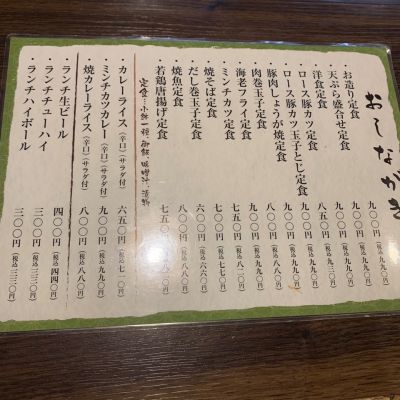 おしながき
・お造り定食 九〇〇円(税込九九〇円)
・天ぷら盛合せ定食 九〇〇円(税込九九〇円)
・洋食定食 八五〇円(税込九三〇円)
・ロース豚カツ定食 九〇〇円(税込九九〇円)
・ロース豚カツ玉子とじ定食 九〇〇円(税込九九〇円)
・豚肉しょうが焼定食 九〇〇円(税込九九〇円)
・肉巻玉子定食 九〇〇円(税込九九〇円)
・海老フライ定食 七五〇円(税込八二〇円)
・ミンチカツ定食 七〇〇円(税込七七〇円)
・焼そば定食 六〇〇円(税込六六〇円)
・だし巻玉子定食
・焼魚定食 八〇〇円(税込八八〇円)
・若鶏唐揚げ定食 七五〇円
定食…小鉢一種、御飯、味噌汁、漬物
・カレーライス(辛口)(サラダ付) 六五〇円(税込七一〇円)
・ミンチカツカレー(辛口)(サラダ付) 九〇〇円(税込九九〇円)
・焼カレーライス(辛口)(サラダ付) 八〇〇円(税込八八〇円)
・ランチ生ビール 四〇〇円(税込四四〇円)
・ランチチューハイ 三〇〇円(税込三三〇円)
・ランチハイボール 三〇〇円(税込三三〇円)